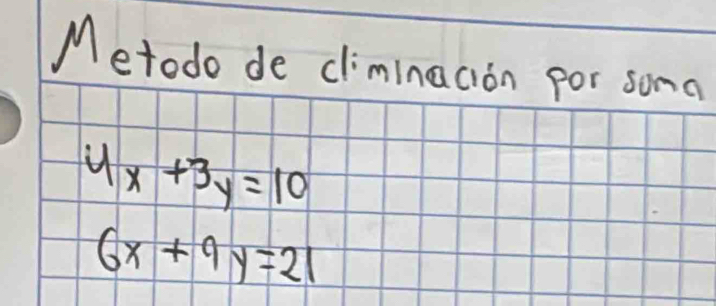 Metodo de eliminación por suma
4x + 3y = 10
6x + 9y = 21